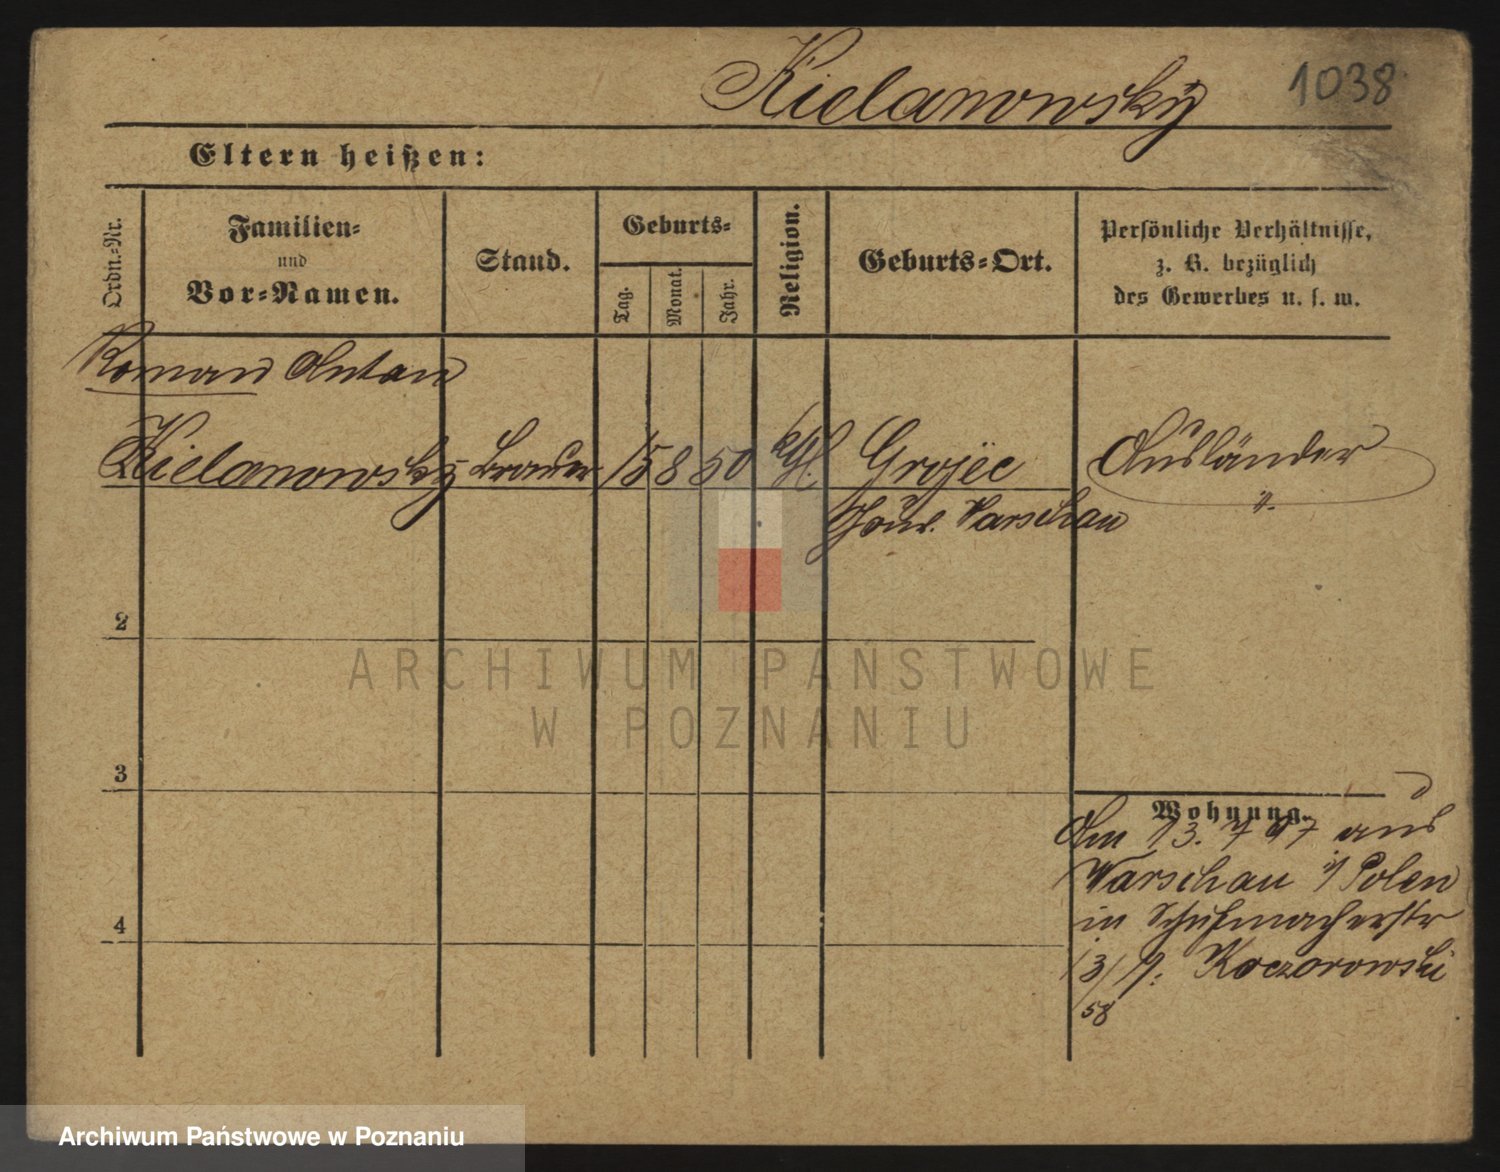 Kielanowsky 1038
Eltern heißen:
Ordn.-Nr.
Familien-
und
Vor-Namen.
Stand.
Geburts-
Tag.
Monat.
Jahr.
Religion.
Geburts-Ort.
Persönliche Verhältnisse,
z. B. bezüglich
des Gewerbes u. s. w.
Roman Anton
Kielanowsky Brauer 15 8 50 kth. Grojec Ausländer
Gouv. Warschau
2
ARCHIWUM PAŃSTWOWE
W POZNANIU
3
Wohnung.
Am 13. 7 97 aus
Warschau i/Polen
in Schuhmacherstr
13/ Koczorowski
58
4
Archiwum Państwowe w Poznaniu